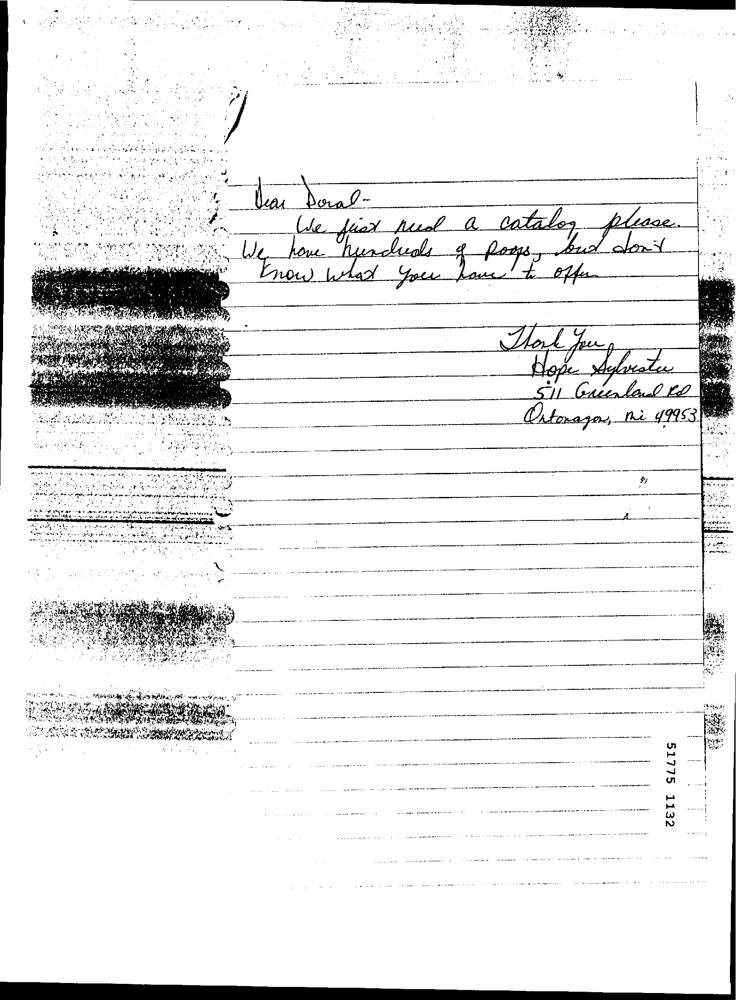 Dear Doral-
We just need a catalog please.
We have hundreds of poops, but don't
know what you have to offer
Thank You,
Hope Sylvester
511 Greenland Rd
Ontonagon, Mi 49953
51775 1132